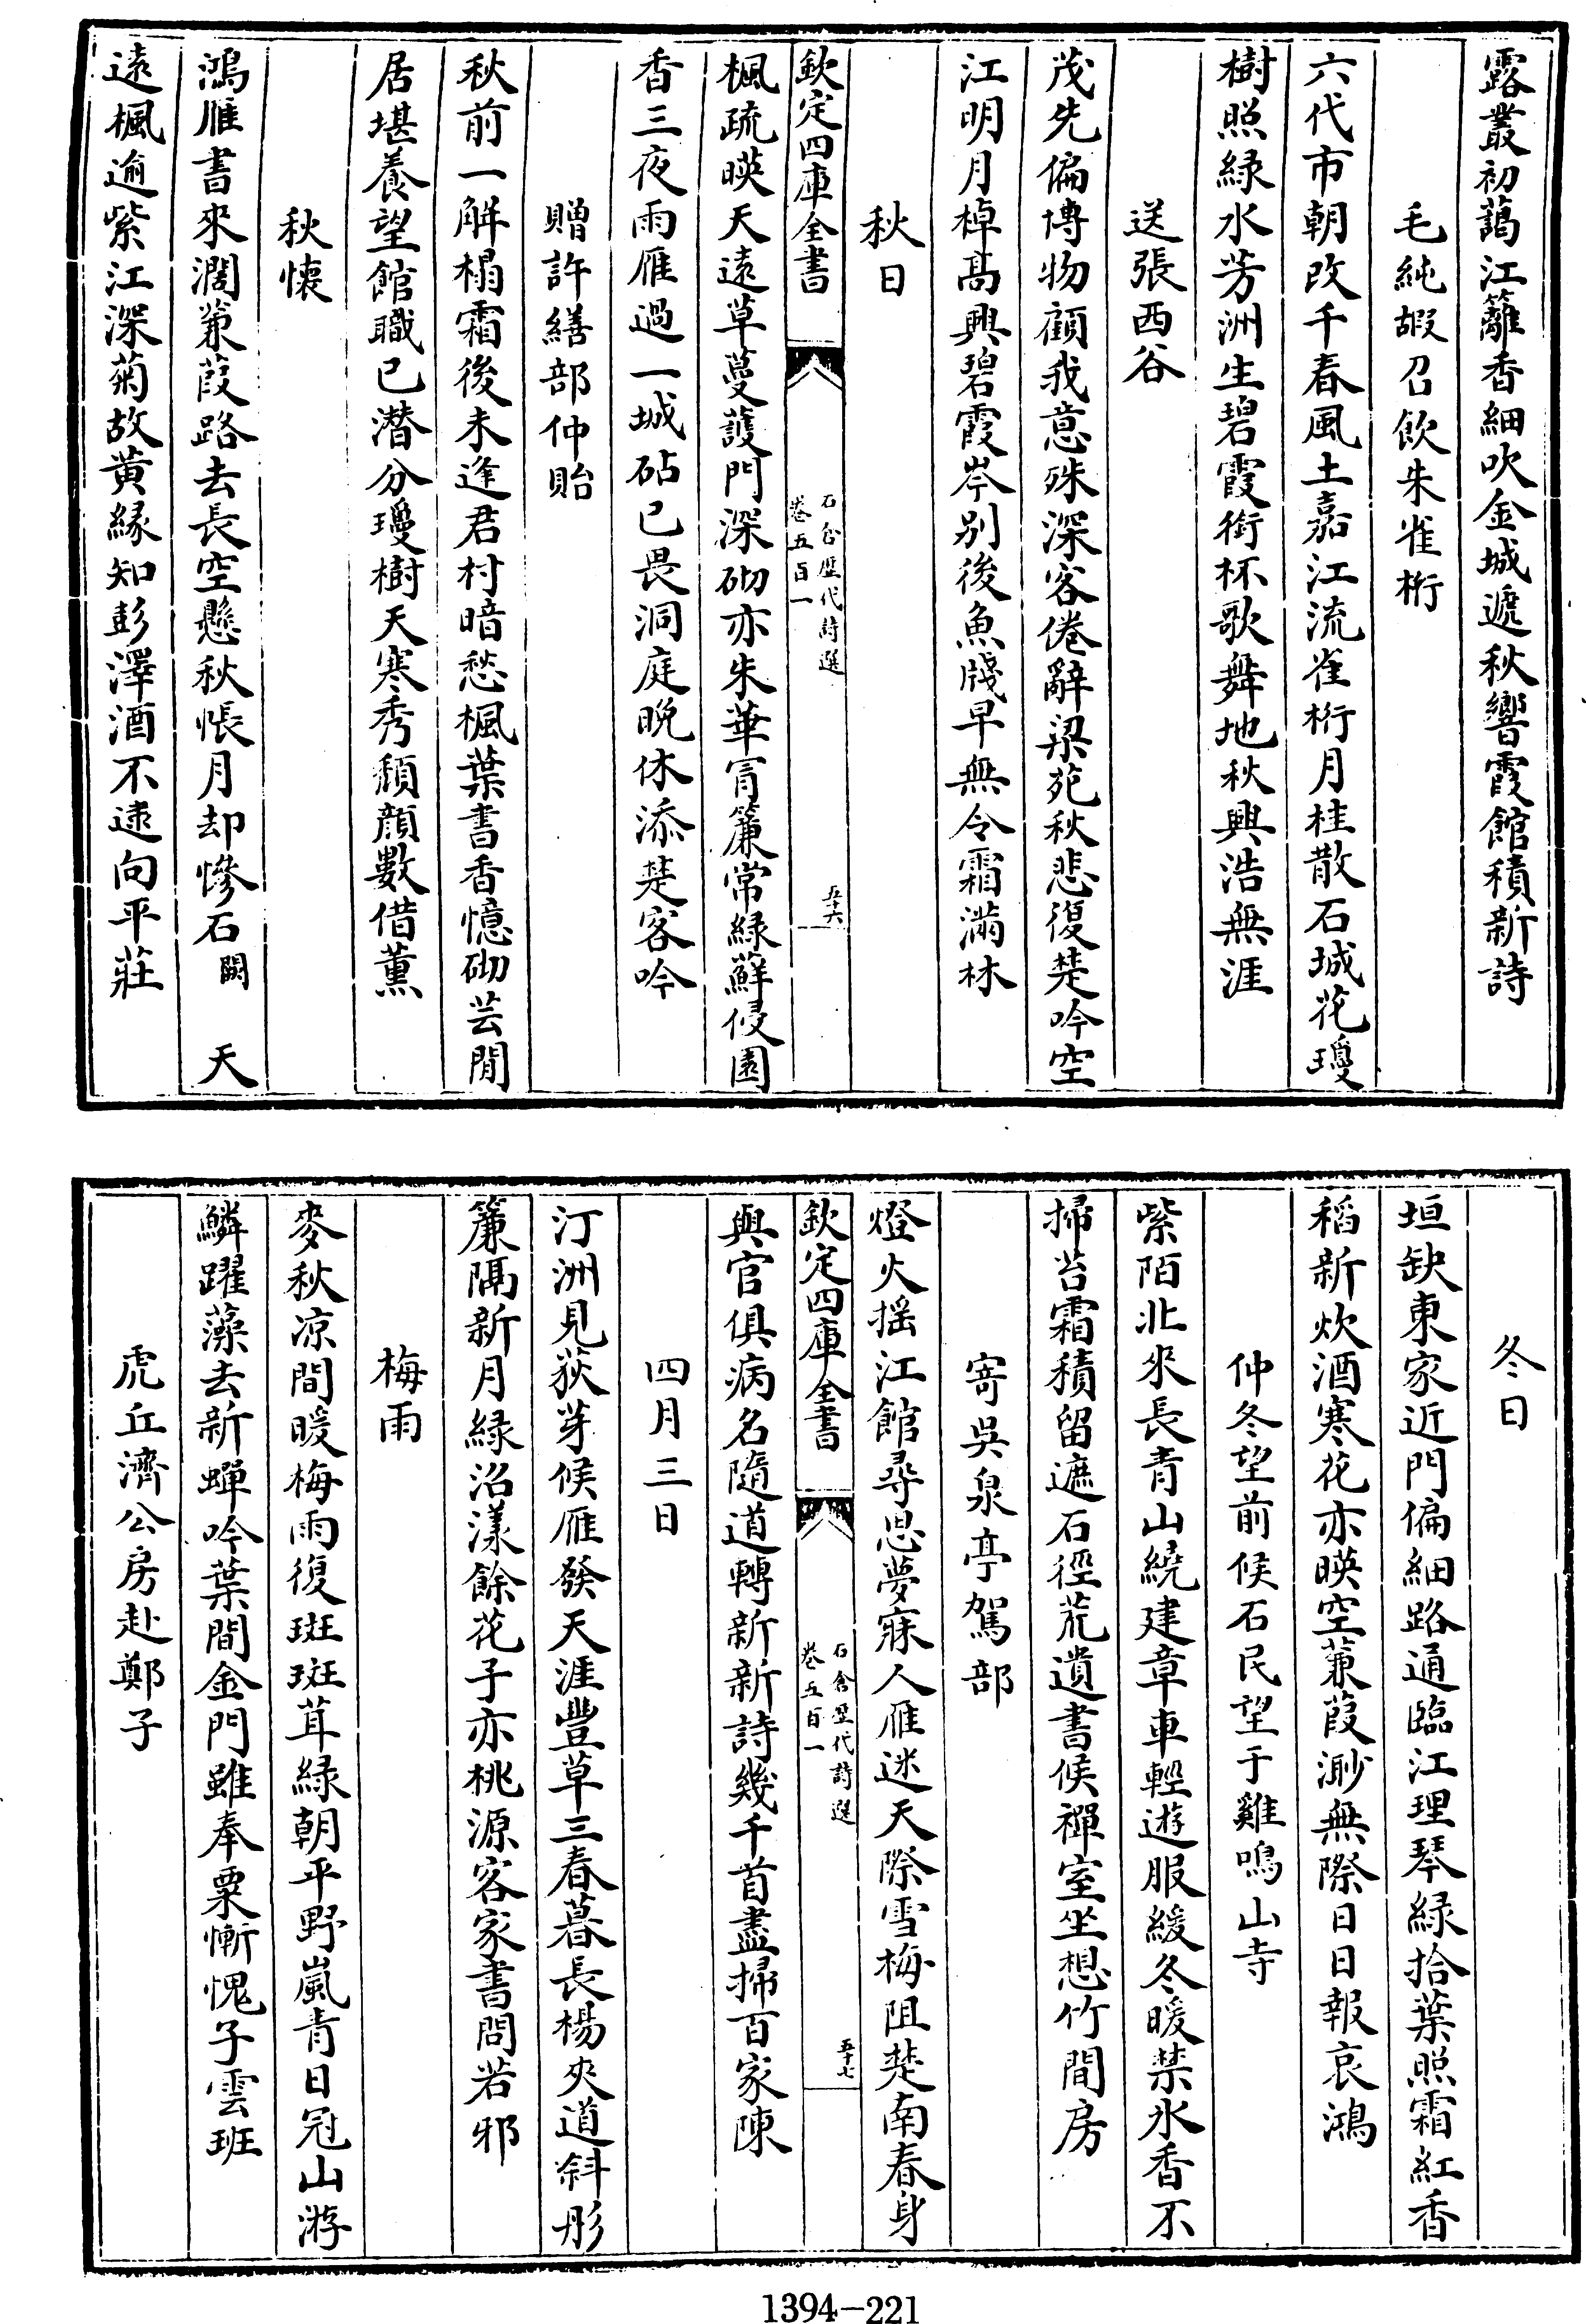 露叢初藹江籬香細吹金城遞秋響霞館積新詩
毛純嘏召飲朱雀桁
六代市朝改千春風土嘉江流雀桁月桂散石城花瓊
樹照緑水芳洲生碧霞銜杯歌舞地秋興浩無涯
送張西谷
茂先偏博物顧我意殊深客倦辭梁苑秋悲復楚吟空
江明月棹髙興碧霞岑别後魚牋早無令霜滿林
秋日
欽定四庫全書
石倉歴代詩選
卷五百一
五十六
楓疏暎天遠草蔓護門深砌亦朱華冐簾常緑蘚侵園
香三夜雨雁過一城砧已畏洞庭晚休添楚客吟
贈許繕部仲貽
秋前一解榻霜後未逢君村暗愁楓葉書香憶砌芸閒
居堪養望館職已潛分瓊樹天寒秀頽顔數借薫
秋懐
鴻雁書來濶蒹葭路去長空懸秋悵月却慘石闕天
逺楓逾紫江深菊故黄縁知彭澤酒不逮向平莊
冬日
垣缺東家近門偏細路通臨江理琴緑拾葉照霜紅香
稻新炊酒寒花亦暎空蒹葭渺無際日日報哀鴻
仲冬望前候石民望于雞鳴山寺
紫陌北來長青山繞建章車輕遊服緩冬暖禁氷香不
掃苔霜積留遮石徑荒遺書候禪室坐想竹間房
寄吳泉亭駕部
燈火摇江館尋思夢寐人雁迷天際雪梅阻楚南春身
欽定四庫全書
石倉歴代詩選
卷五百一
五十七
與官俱病名隨道轉新新詩幾千首盡掃百家陳
四月三日
汀洲見荻芽候雁發天涯豐草三春暮長楊夾道斜彤
簾隔新月緑沼漾餘花子亦桃源客家書問若邪
梅雨
麥秋凉間暖梅雨復斑斑茸緑朝平野嵐青日冠山游
鱗躍藻去新蟬吟葉間金門雖奉粟慚愧子雲班
虎丘濟公房赴鄭子
1394-221